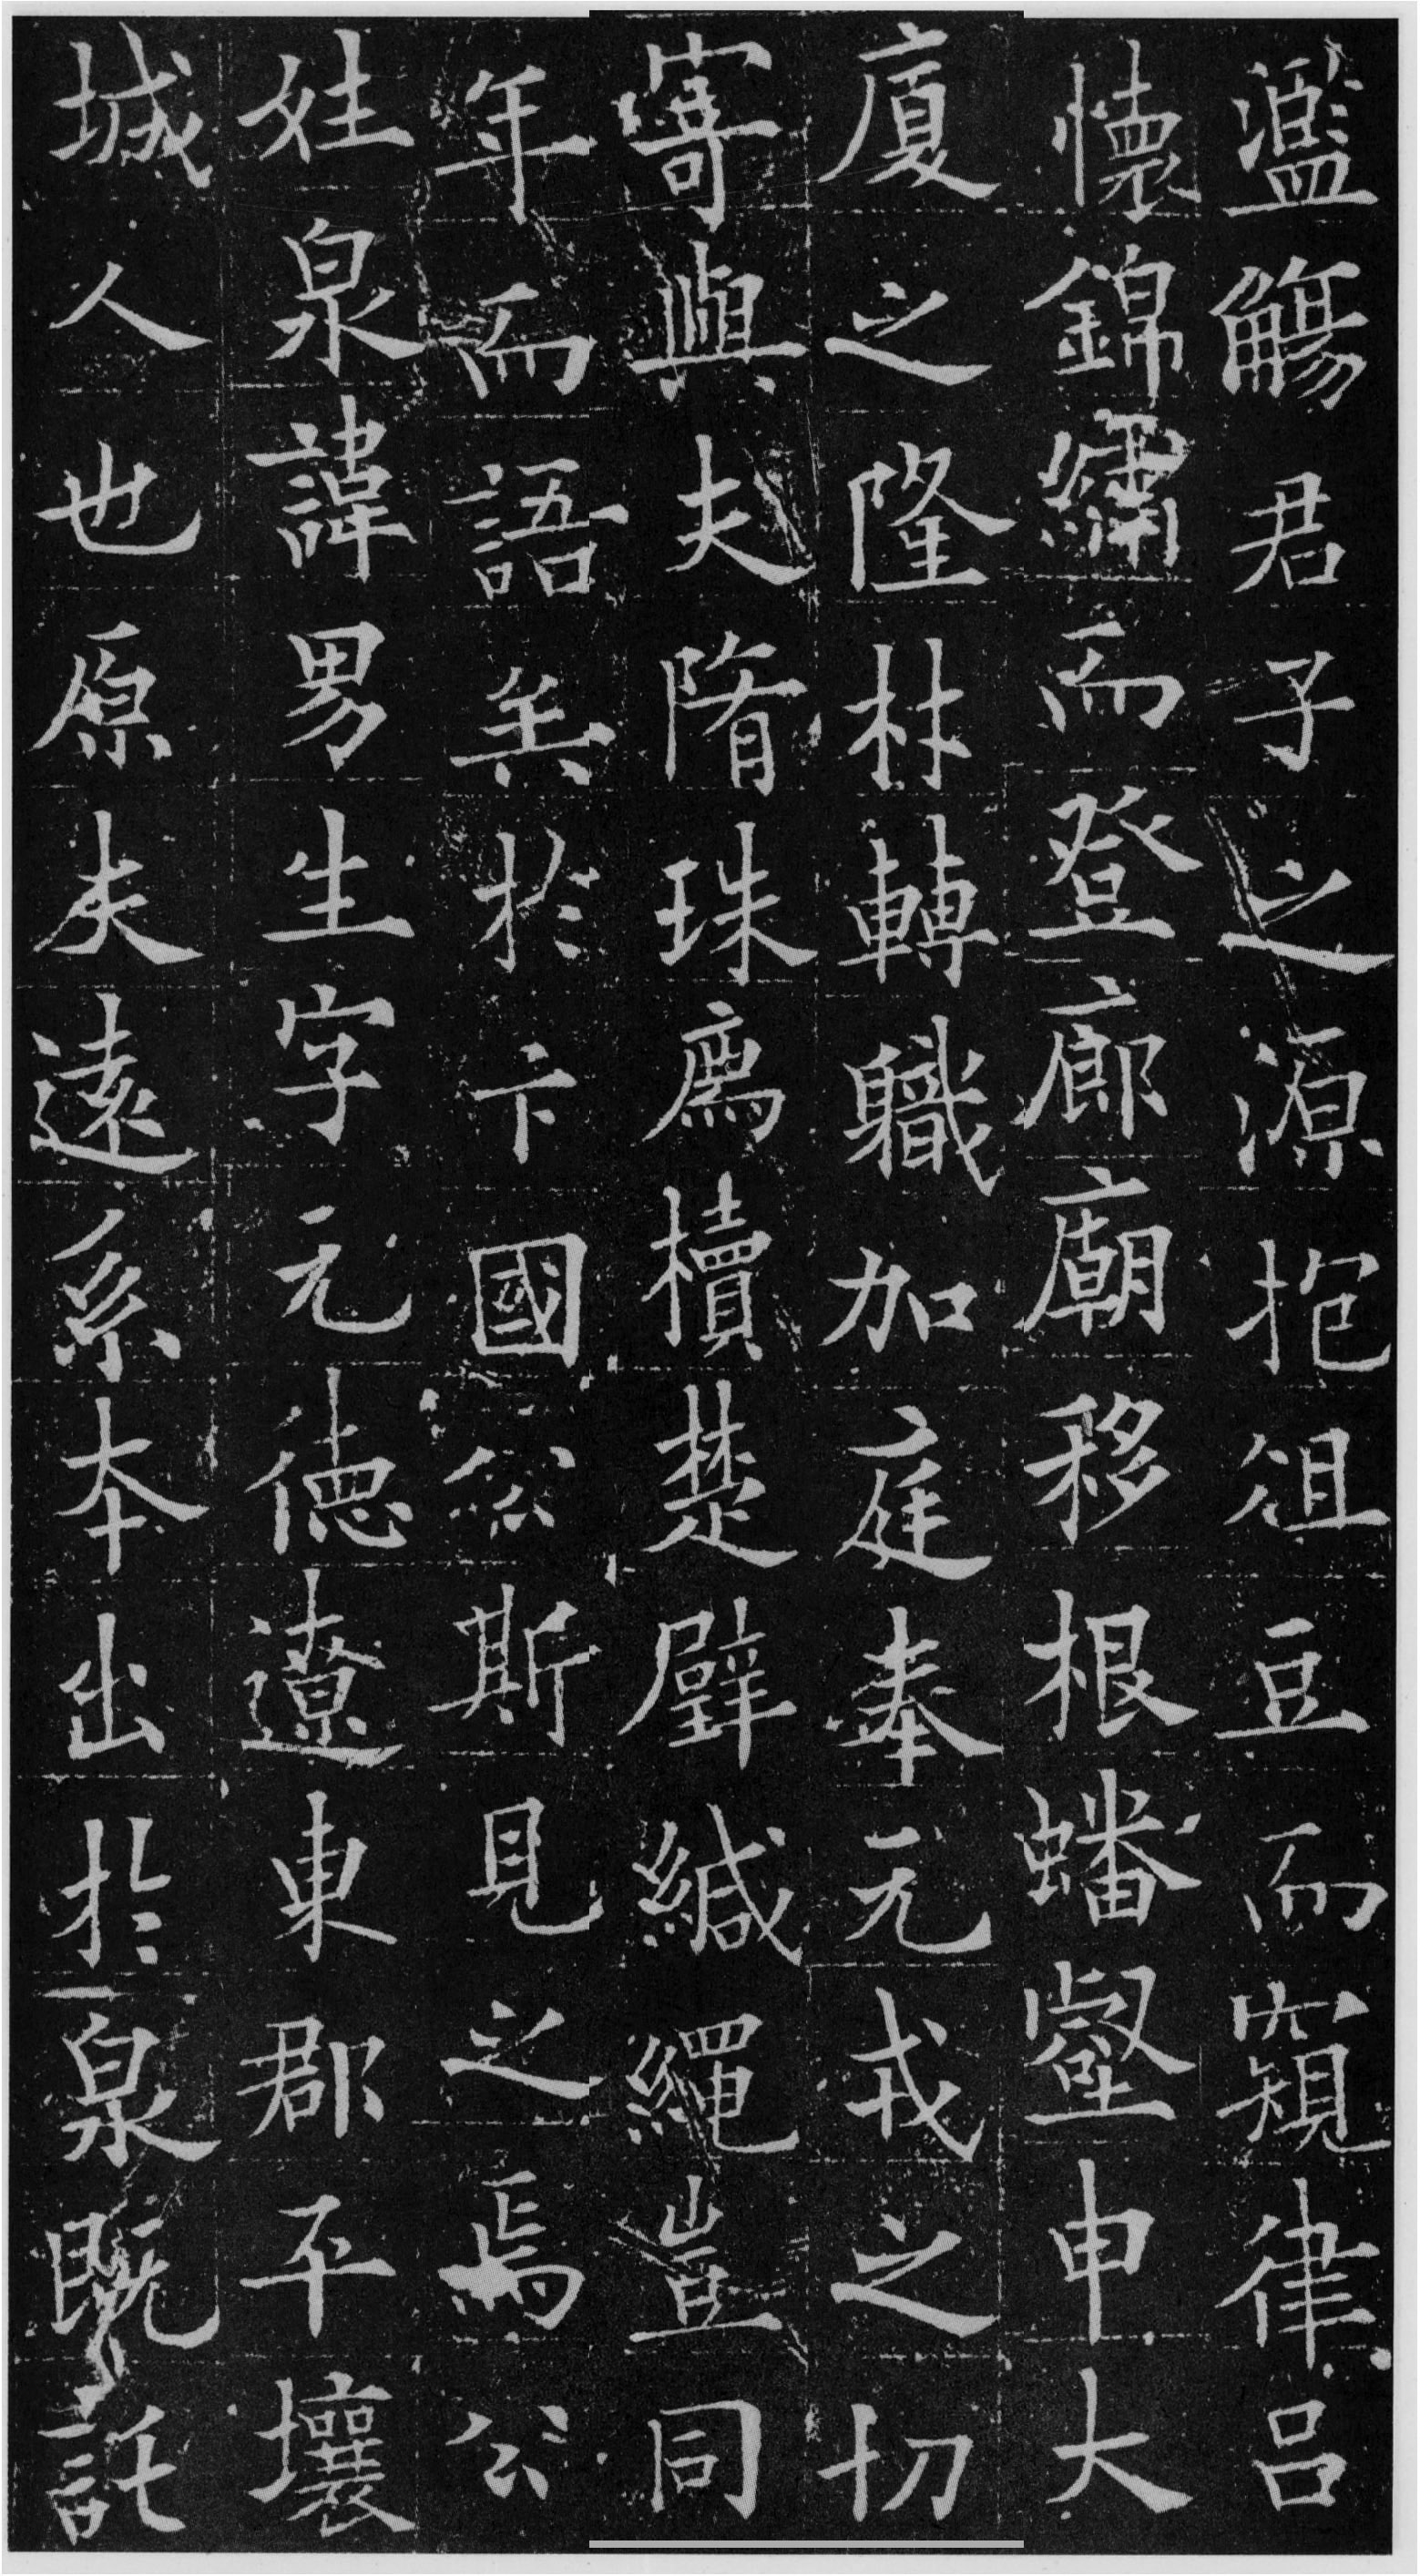 濫觴君子之源抱俎豆而窺律呂
懷錦繡而登廊廟移根蟠壑申大
廈之隆材轉職加庭奉元戎之切
寄與夫隋珠爲櫝楚璧緘繩豈同
年而語矣於卞國公斯見之焉公
姓泉諱男生字元德遼東郡平壤
城人也原夫遠系本出於泉既託